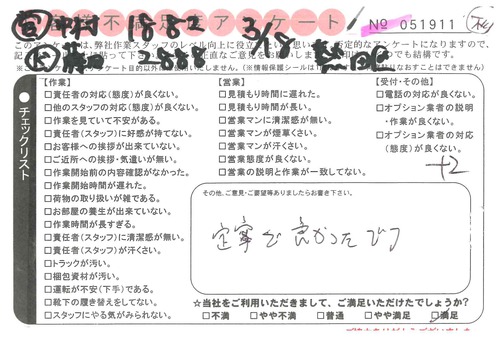 不満足度アンケート
№ 051911
1882
3/15
2888
このアンケートは、弊社作業スタッフのレベル向上に役立
定的なアンケートになりますので、
チェックリスト
【作業】
□責任者の対応(態度)が良くない。
□他のスタッフの対応(態度)が良くない。
□作業を見ていて不安がある。
□責任者(スタッフ)に好感が持てない。
□お客様への挨拶が出来ていない。
□ご近所への挨拶・気遣いが無い。
□作業開始前の内容確認がなかった。
□作業開始時間が遅れた。
□荷物の取り扱いが雑である。
□お部屋の養生が出来ていない。
□作業時間が長すぎる。
□責任者(スタッフ)に清潔感が無い。
□責任者(スタッフ)が汗くさい。
□トラックが汚い。
□梱包資材が汚い。
□運転が安心(下手)である。
□靴下の履き替えをしてない。
□スタッフにやる気がみられない。
【営業】
□見積もり時間に遅れた。
□見積もり時間が長い。
□営業マンに清潔感が無い。
□営業マンが煙草くさい。
□営業マンが汗くさい。
□営業態度が良くない。
□営業の説明と作業が一致してない。
【受付・その他】
□電話の対応が良くない。
□オプション業者の説明
・作業が良くない。
□オプション業者の対応
(態度)が良くない。
+2
その他、ご意見・ご要望等ありましたらお書き下さい。
丁寧で良かったです
☆当社をご利用いただきまして、ご満足いただけたでしょうか?
□不満 □やや不満 □普通 □やや満足 □満足